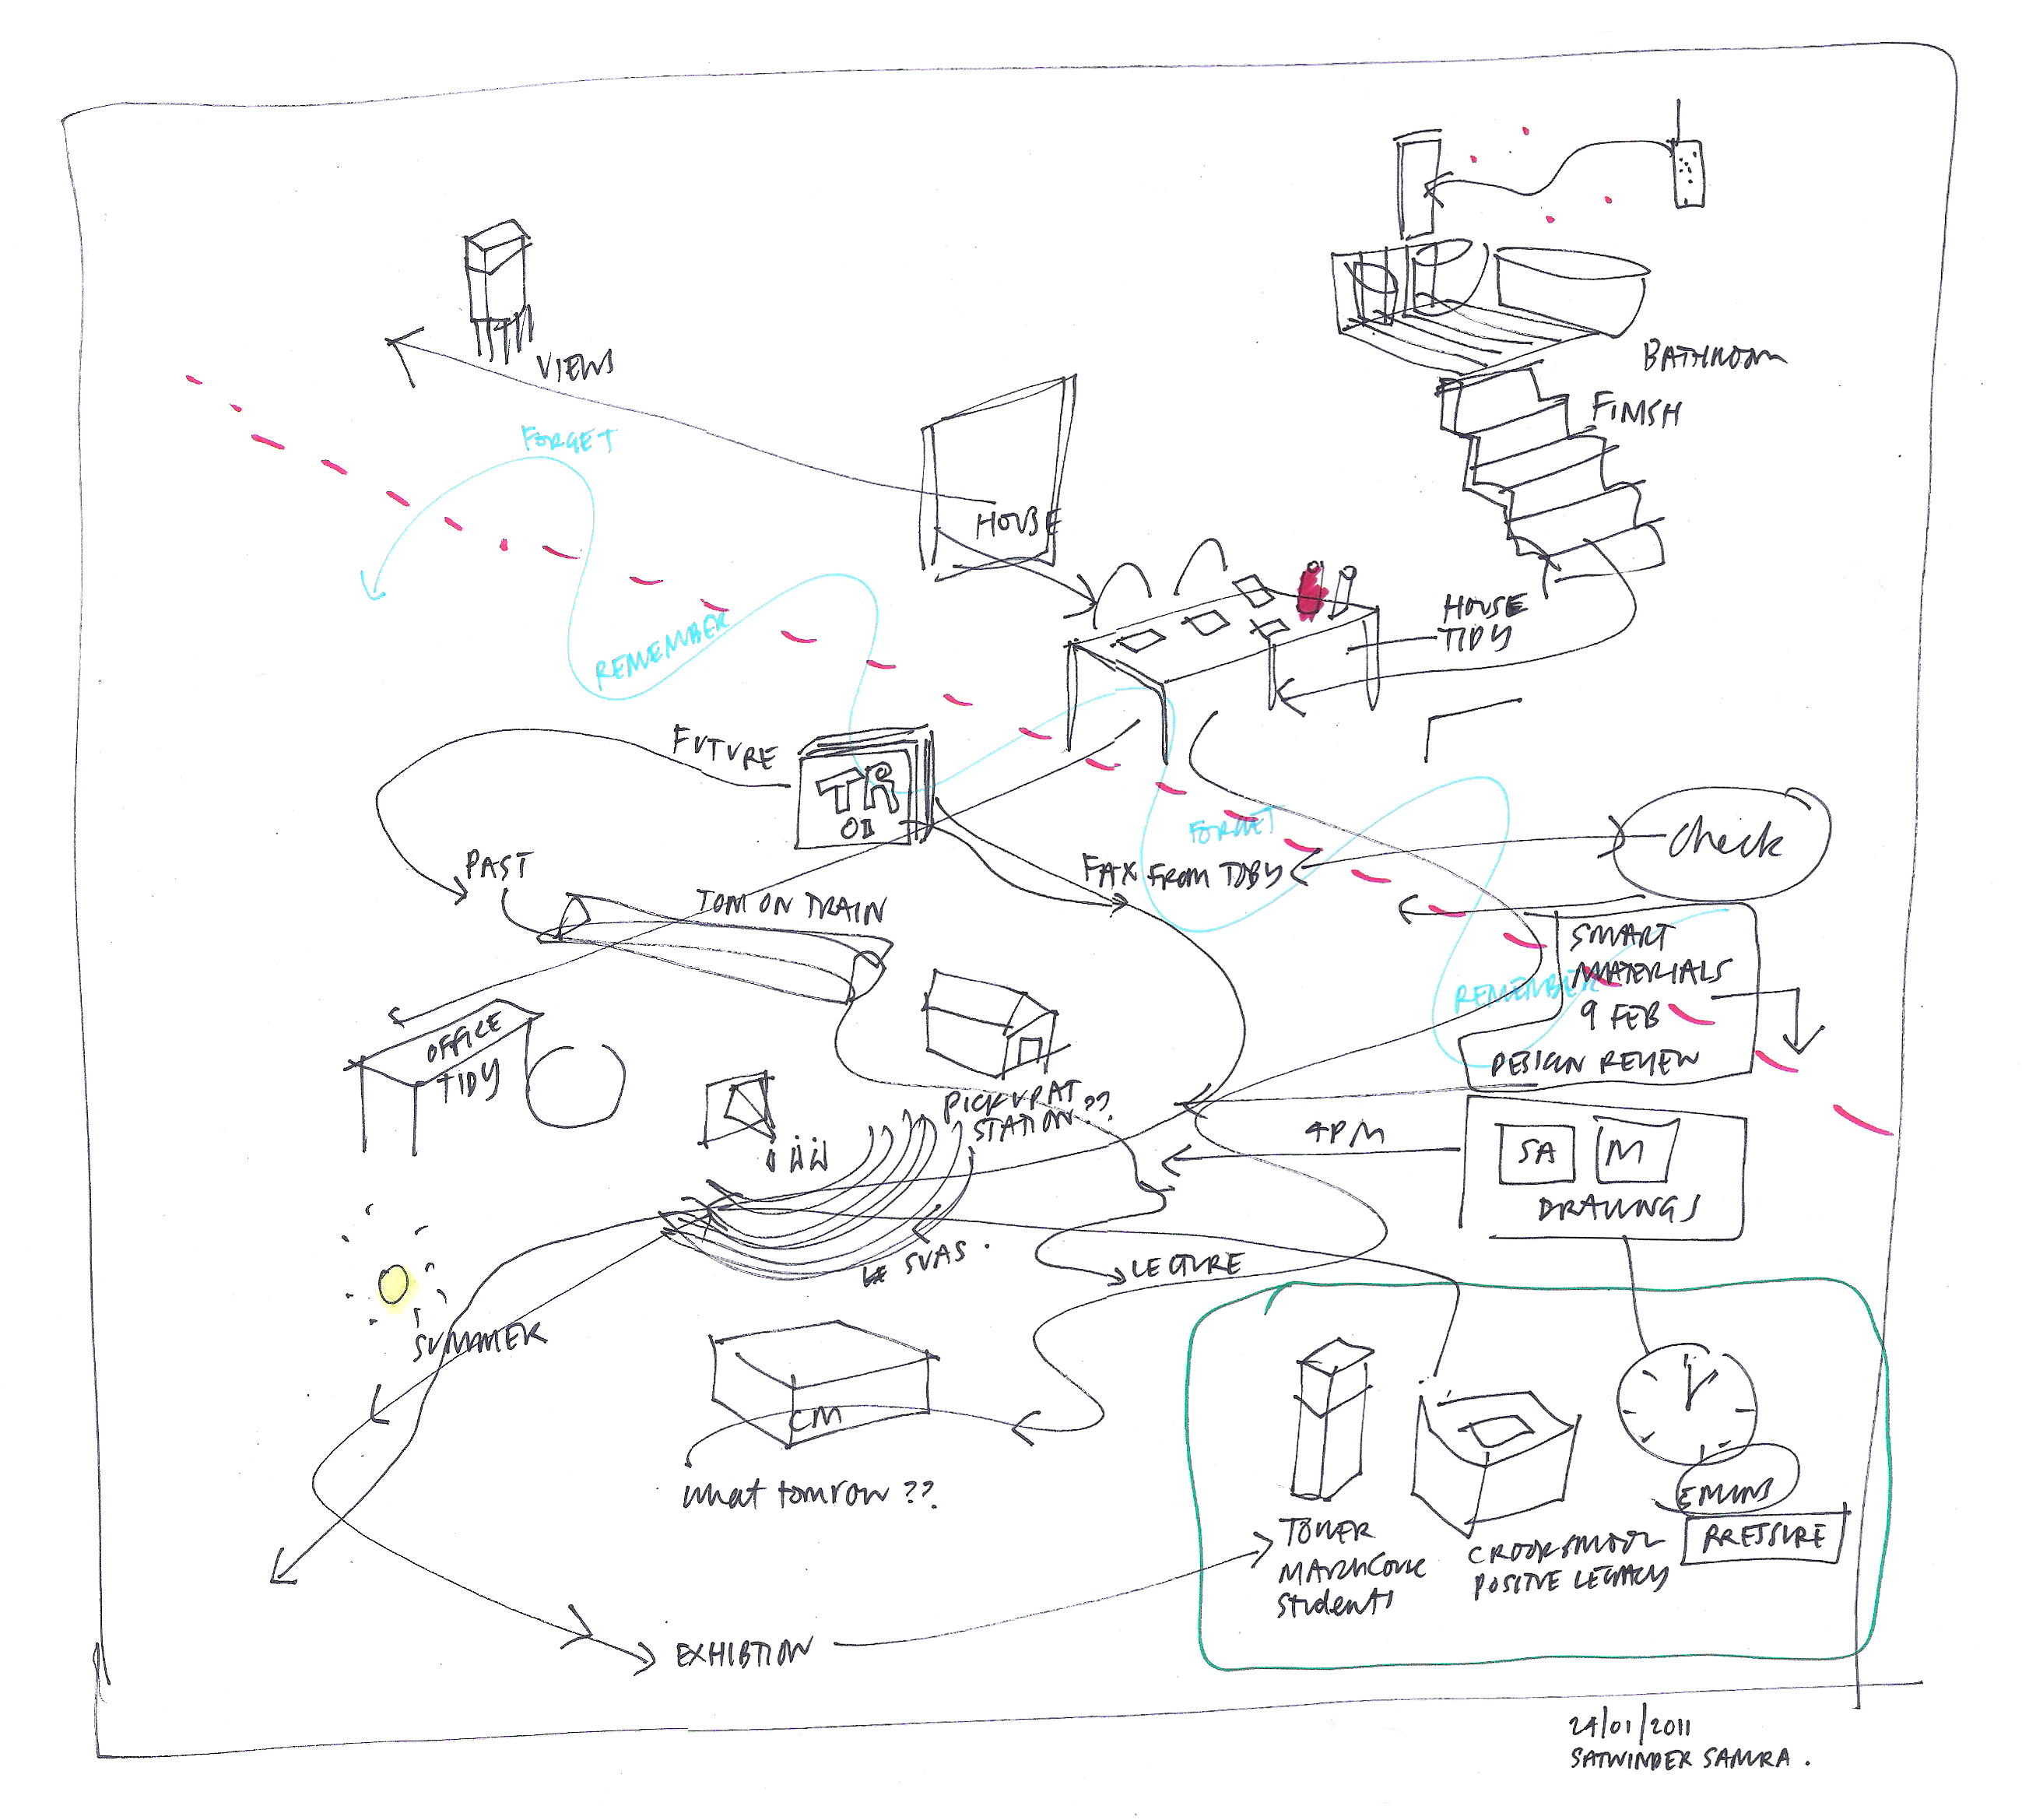 VIEWS
BATHROOM
FINISH
FORGET
HOUSE
REMEMBER
HOUSE
TIDY
FUTURE
TR
FORGET
check
PAST
FAX FROM TOBY
TOM ON TRAIN
SMART
MATERIALS
9 FEB
REMEMBER
DESIGN REVIEW
OFFICE
TIDY
PICK UP AT
STATION ??
4PM
SA
M
DRAWINGS
SUAS.
LECTURE
SUMMER
CM
what tomrow ??
TOWER
students
POSITIVE LEGACY
PRESSURE
EXHIBTION
24/01/2011
SATWINDER SAMRA.